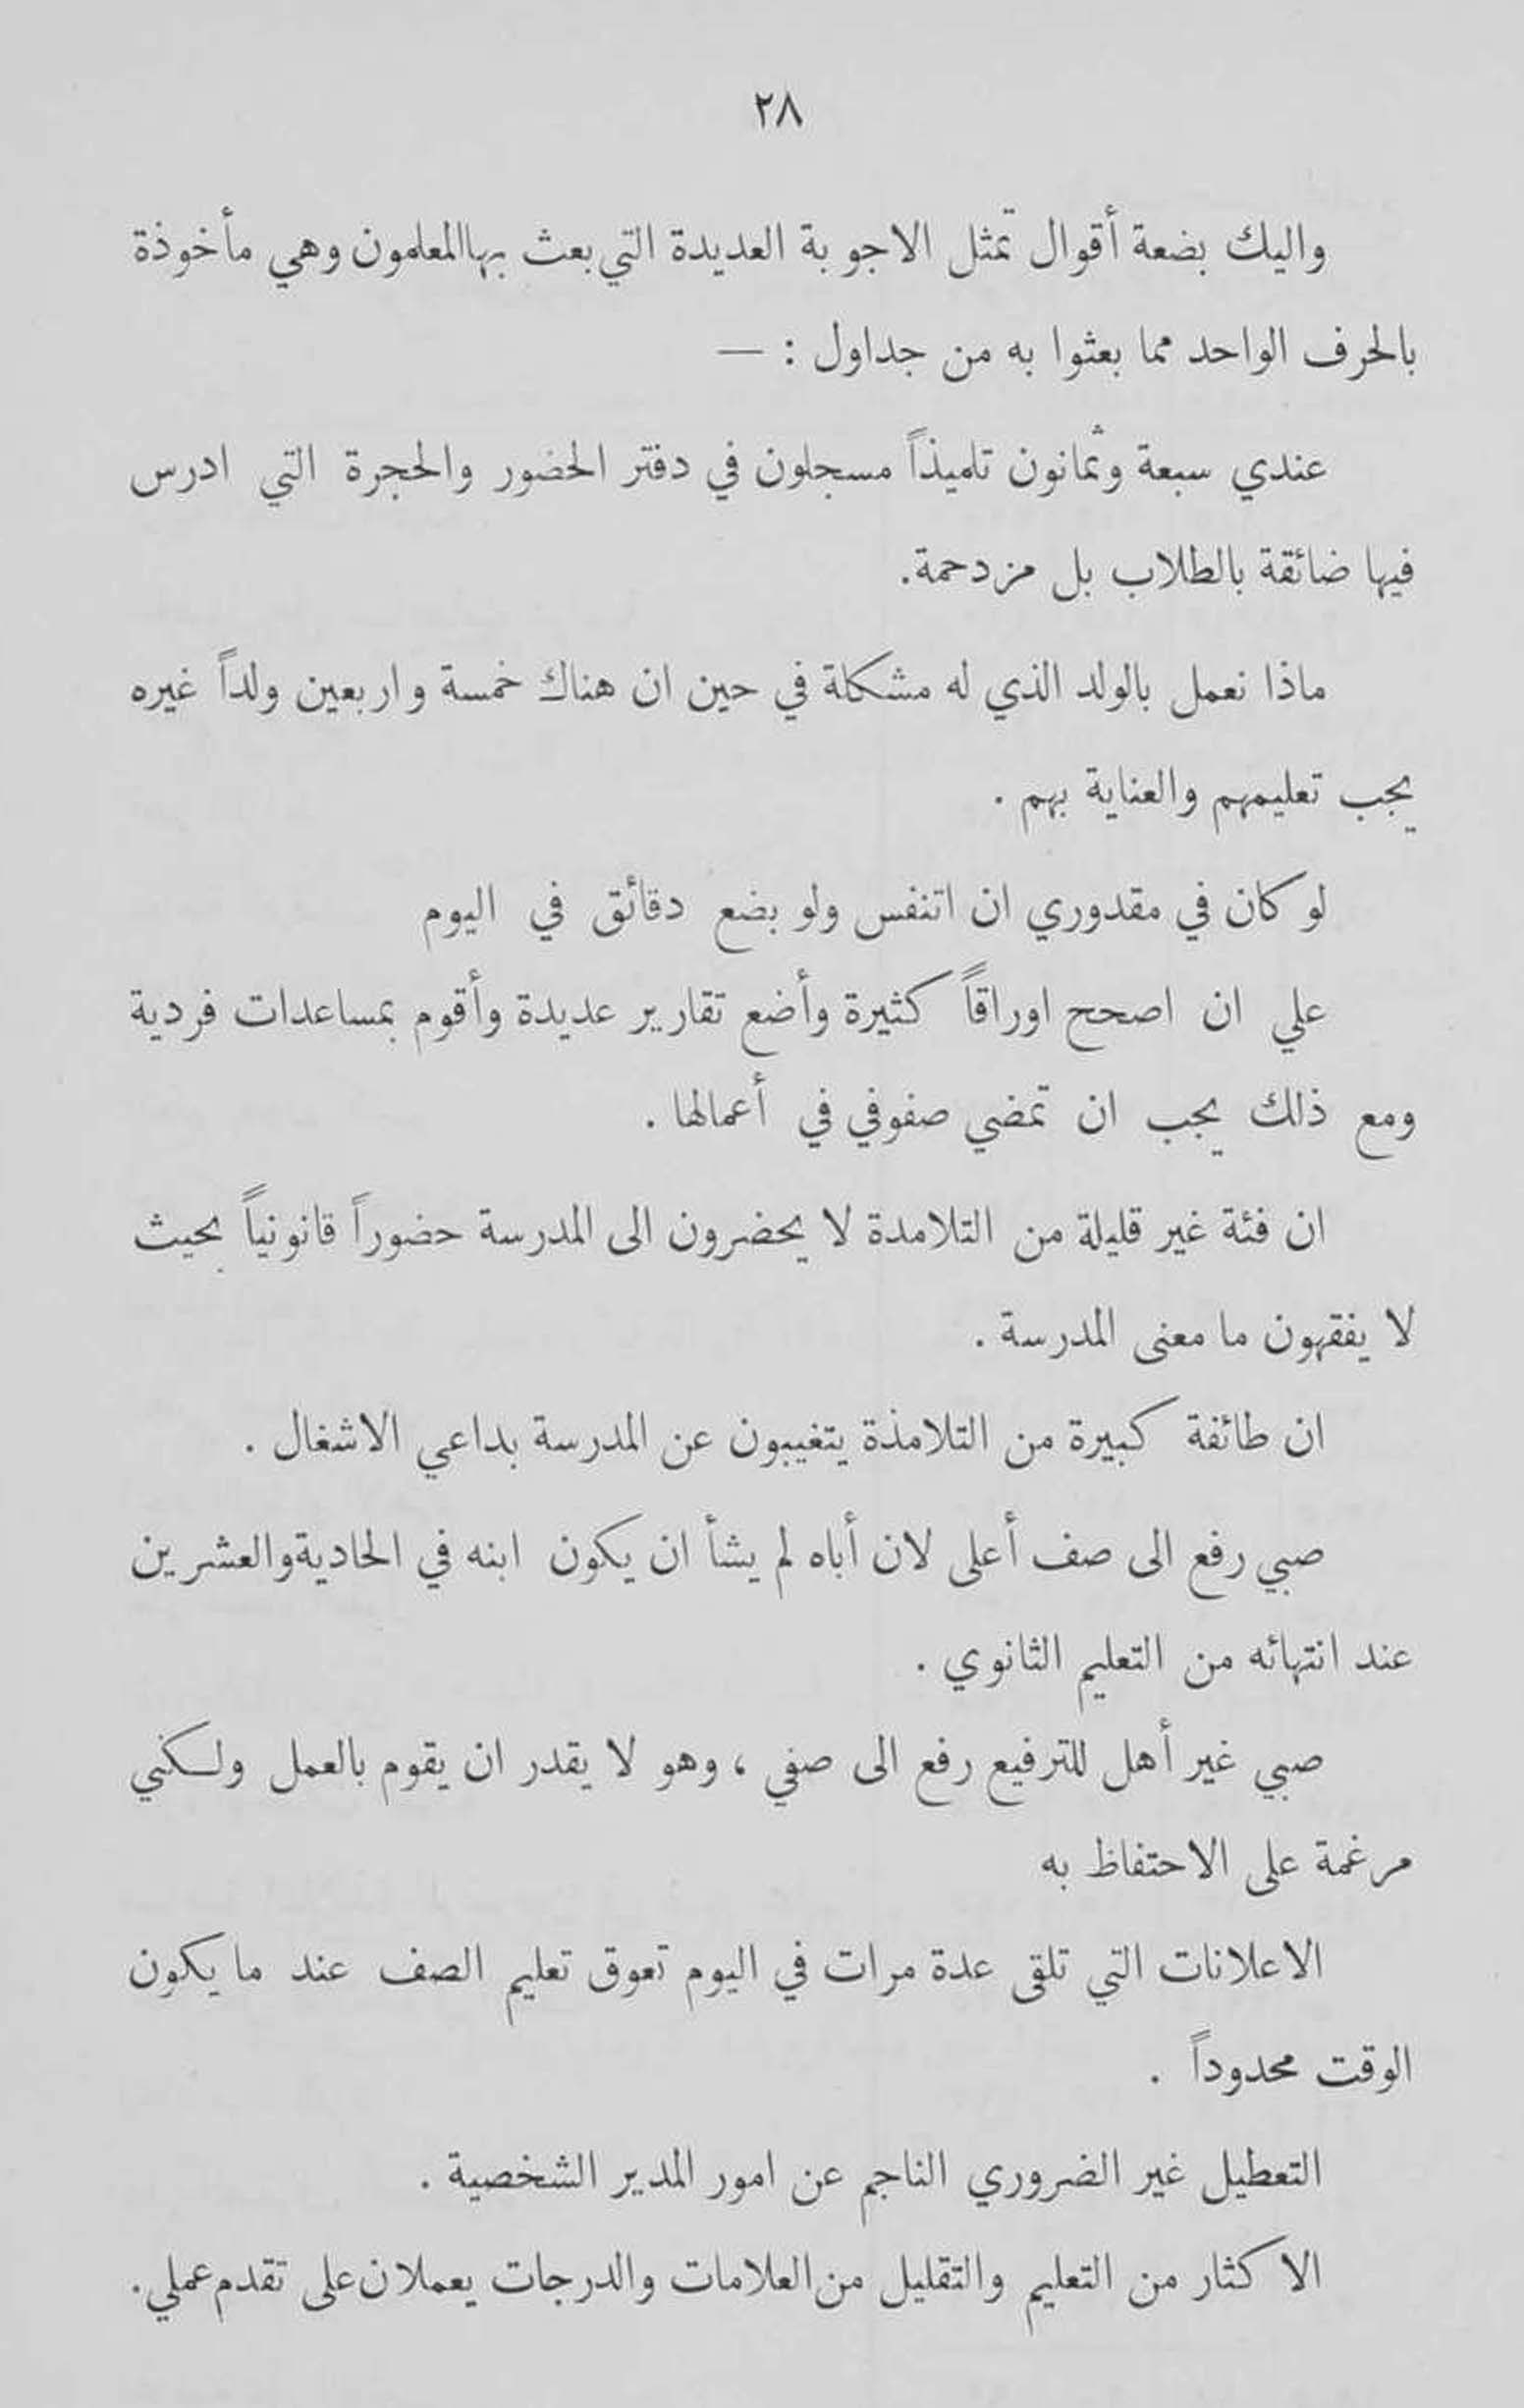 ٢٨
واليك بضعة أقوال تمثل الاجوبة العديدة التي بعث بها المعلمون وهي مأخوذة
بالحرف الواحد مما بعثوا به من جداول : —
عندي سبعة وثمانون تلميذاً مسجلون في دفتر الحضور والحجرة التي ادرس
فيها ضائقة بالطلاب بل مزدحمة.
ماذا نعمل بالولد الذي له مشكلة في حين ان هناك خمسة واربعين ولداً غيره
يجب تعليمهم والعناية بهم .
لو كان في مقدوري ان اتنفس ولو بضع دقائق في اليوم
علي ان اصحح اوراقاً كثيرة وأضع تقارير عديدة وأقوم بمساعدات فردية
ومع ذلك يجب ان تمضي صفوفي في أعمالها .
ان فئة غير قليلة من التلامدة لا يحضرون الى المدرسة حضوراً قانونياً بحيث
لا يفقهون ما معنى المدرسة .
ان طائفة كبيرة من التلامذة يتغيبون عن المدرسة بداعي الاشغال .
صبي رفع الى صف أعلى لان أباه لم يشأ ان يكون ابنه في الحادية والعشرين
عند انتهائه من التعليم الثانوي .
صبي غير أهل للترفيع رفع الى صفي ، وهو لا يقدر ان يقوم بالعمل ولكني
مرغمة على الاحتفاظ به
الاعلانات التي تلقى عدة مرات في اليوم تعوق تعليم الصف عند ما يكون
الوقت محدوداً .
التعطيل غير الضروري الناجم عن امور المدير الشخصية .
الاكثار من التعليم والتقليل من العلامات والدرجات يعملان على تقدم عملي.